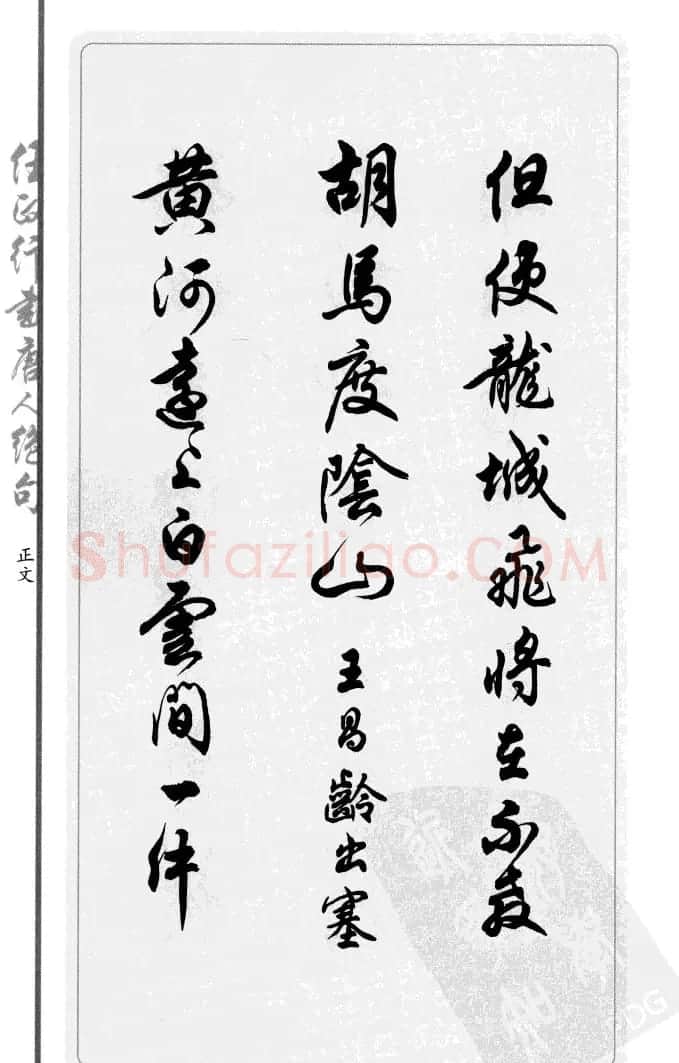 但使龍城飛將在不教
胡馬度陰山 王昌齡出塞
黃河遠上白雲間一片
任政行書唐人絕句
正文
Shufaziliao.COM
DG